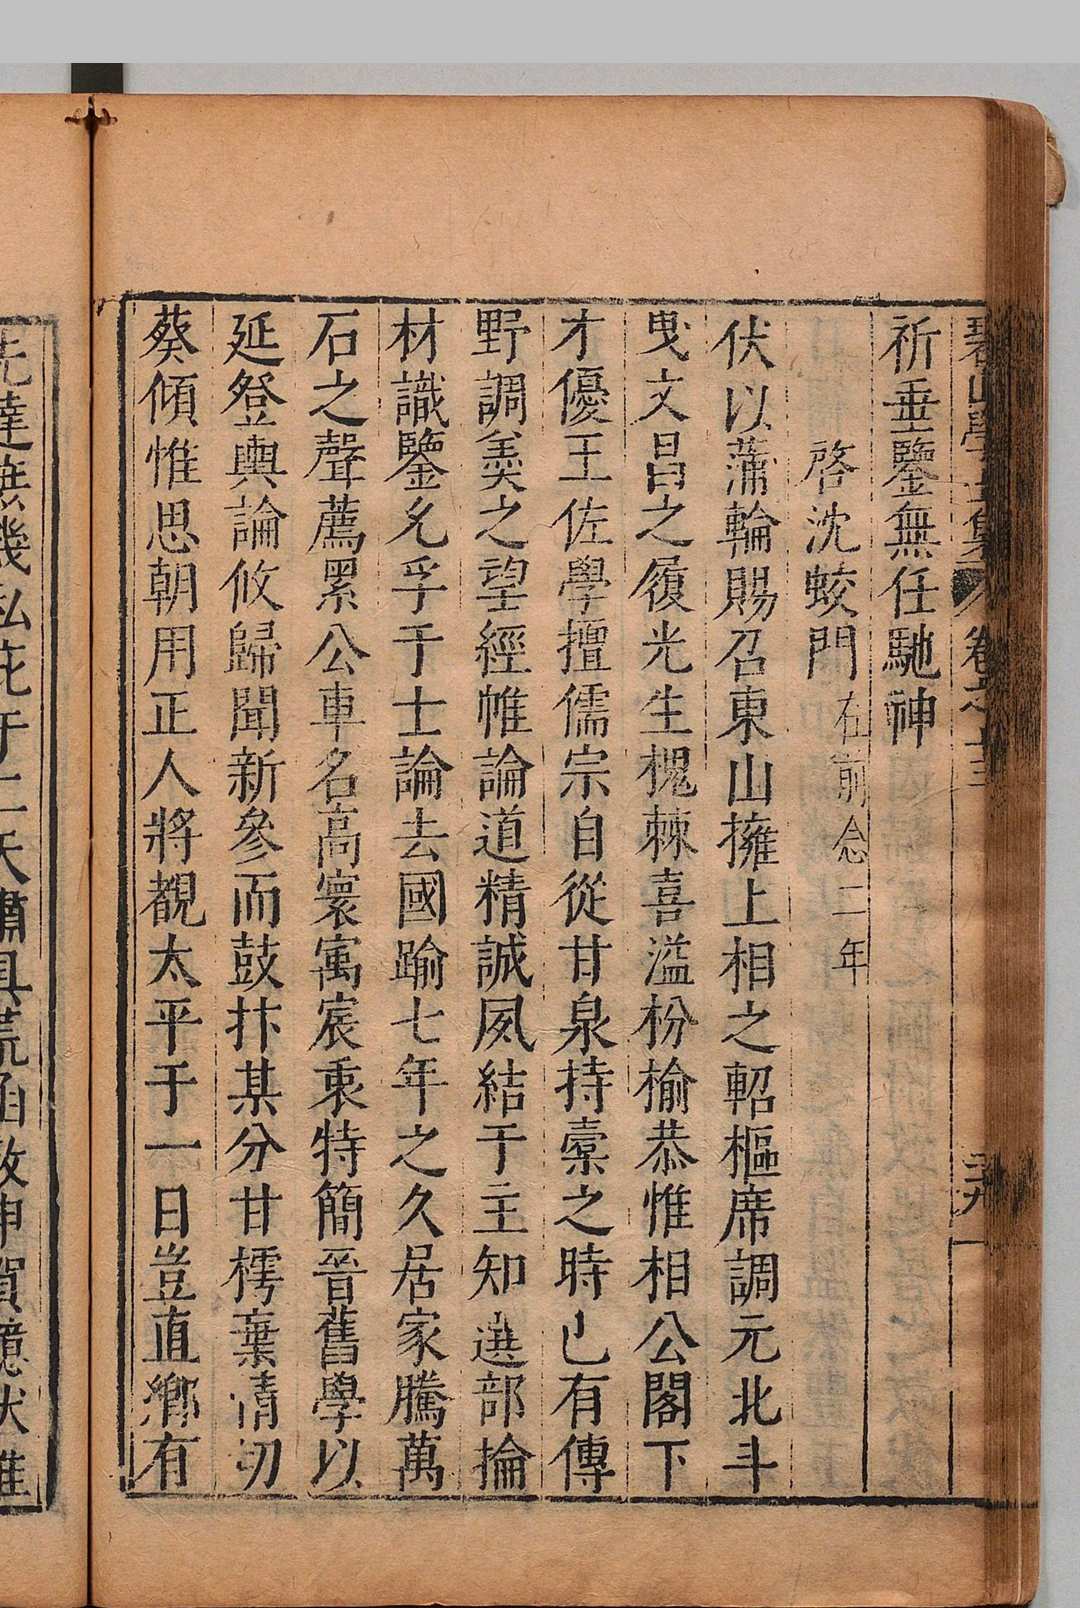 碧山學士集 卷之十三 三九
祈垂鑒無任馳神
啓沈蛟門 在前念二年
伏以蒲輪賜召東山擁上相之軺樞席調元北斗
曳文昌之履光生槐棘喜溢枌榆恭惟相公閣下
才優王佐學擅儒宗自從甘泉持橐之時已有傳
野調羹之望經帷論道精誠夙結于主知選部掄
材識鑒允孚于士論去國踰七年之久居家騰萬
石之聲薦累公車名高寰寓宸衷特簡晉舊學以
延登輿論攸歸聞新參而鼓抃某分甘樗棄情切
葵傾惟思朝用正人將覩太平于一日豈直鄉有